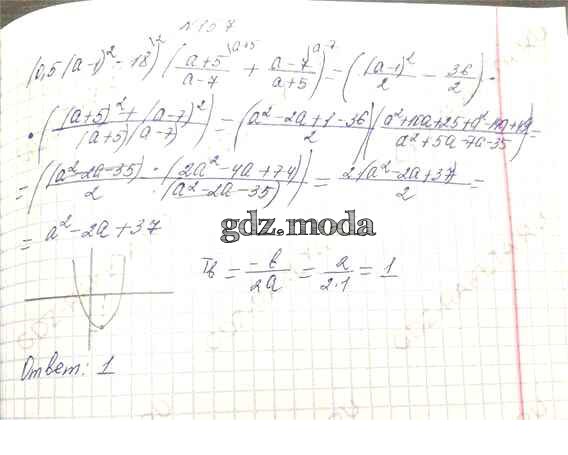 N107
(0,5(a-1)² - 18)\² (a+5/a-7 \a+5 + a-7/a+5 \a-7) = ((a-1)²/2 - 36/2) ·
· ((a+5)² + (a-7)²/(a+5)(a-7)) = (a²-2a+1-36/2)(a²+10a+25+a²-14a+49/a²+5a-7a-35) =
= ((a²-2a-35)/2 · (2a²-4a+74)/(a²-2a-35)) = 2(a²-2a+37)/2 =
= a²-2a+37
gdz.moda
= -b/2a = 2/2·1 = 1
Ответ: 1